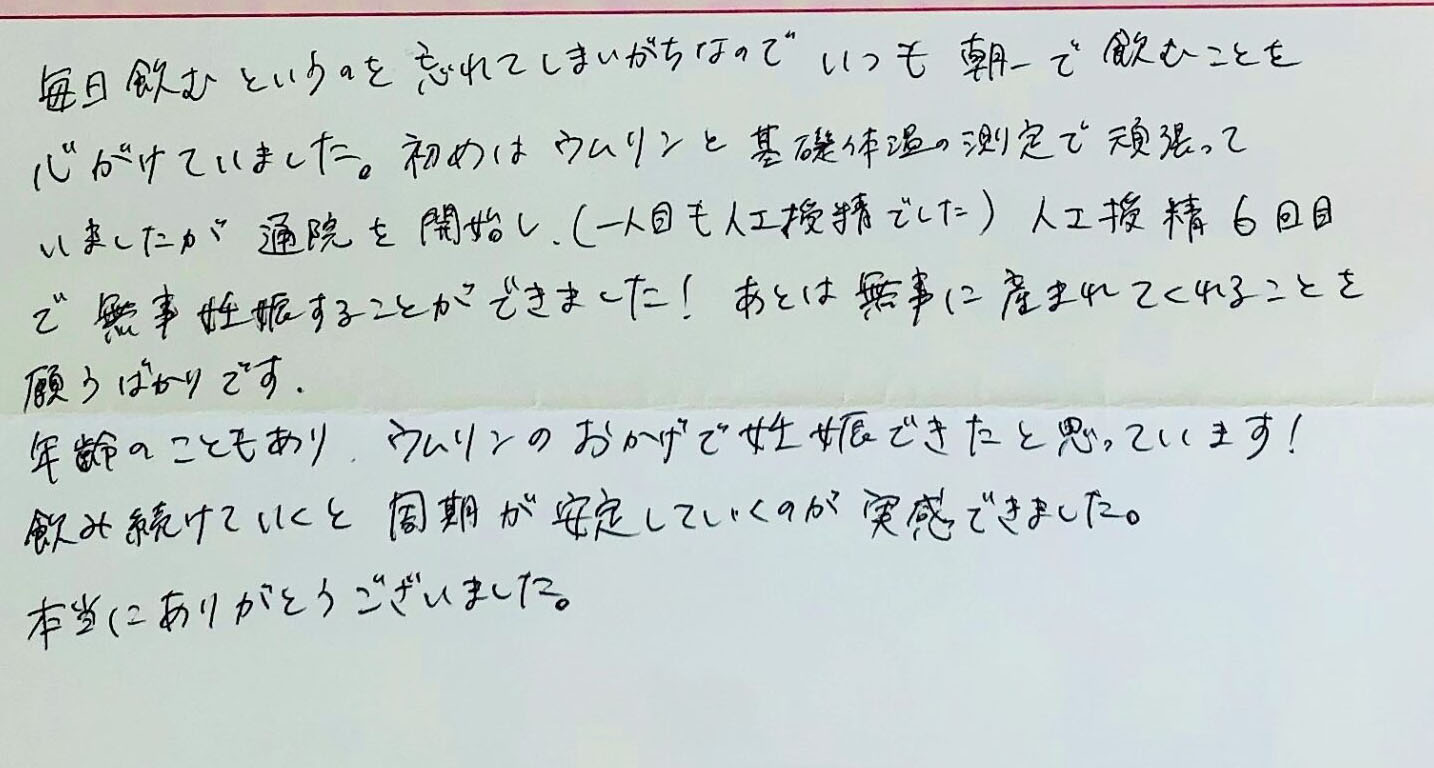 毎日飲むというのを忘れてしまいがちなのでいつも朝一で飲むことを
心がけていました。初めはウムリンと基礎体温の測定で頑張って
いましたが通院を開始し、(一人目も人工授精でした)人工授精6回目
で無事妊娠することができました!あとは無事に産まれてくれることを
願うばかりです.
年齢のこともあり、ウムリンのおかげで妊娠できたと思っています!
飲み続けていくと周期が安定していくのが実感できました。
本当にありがとうございました。